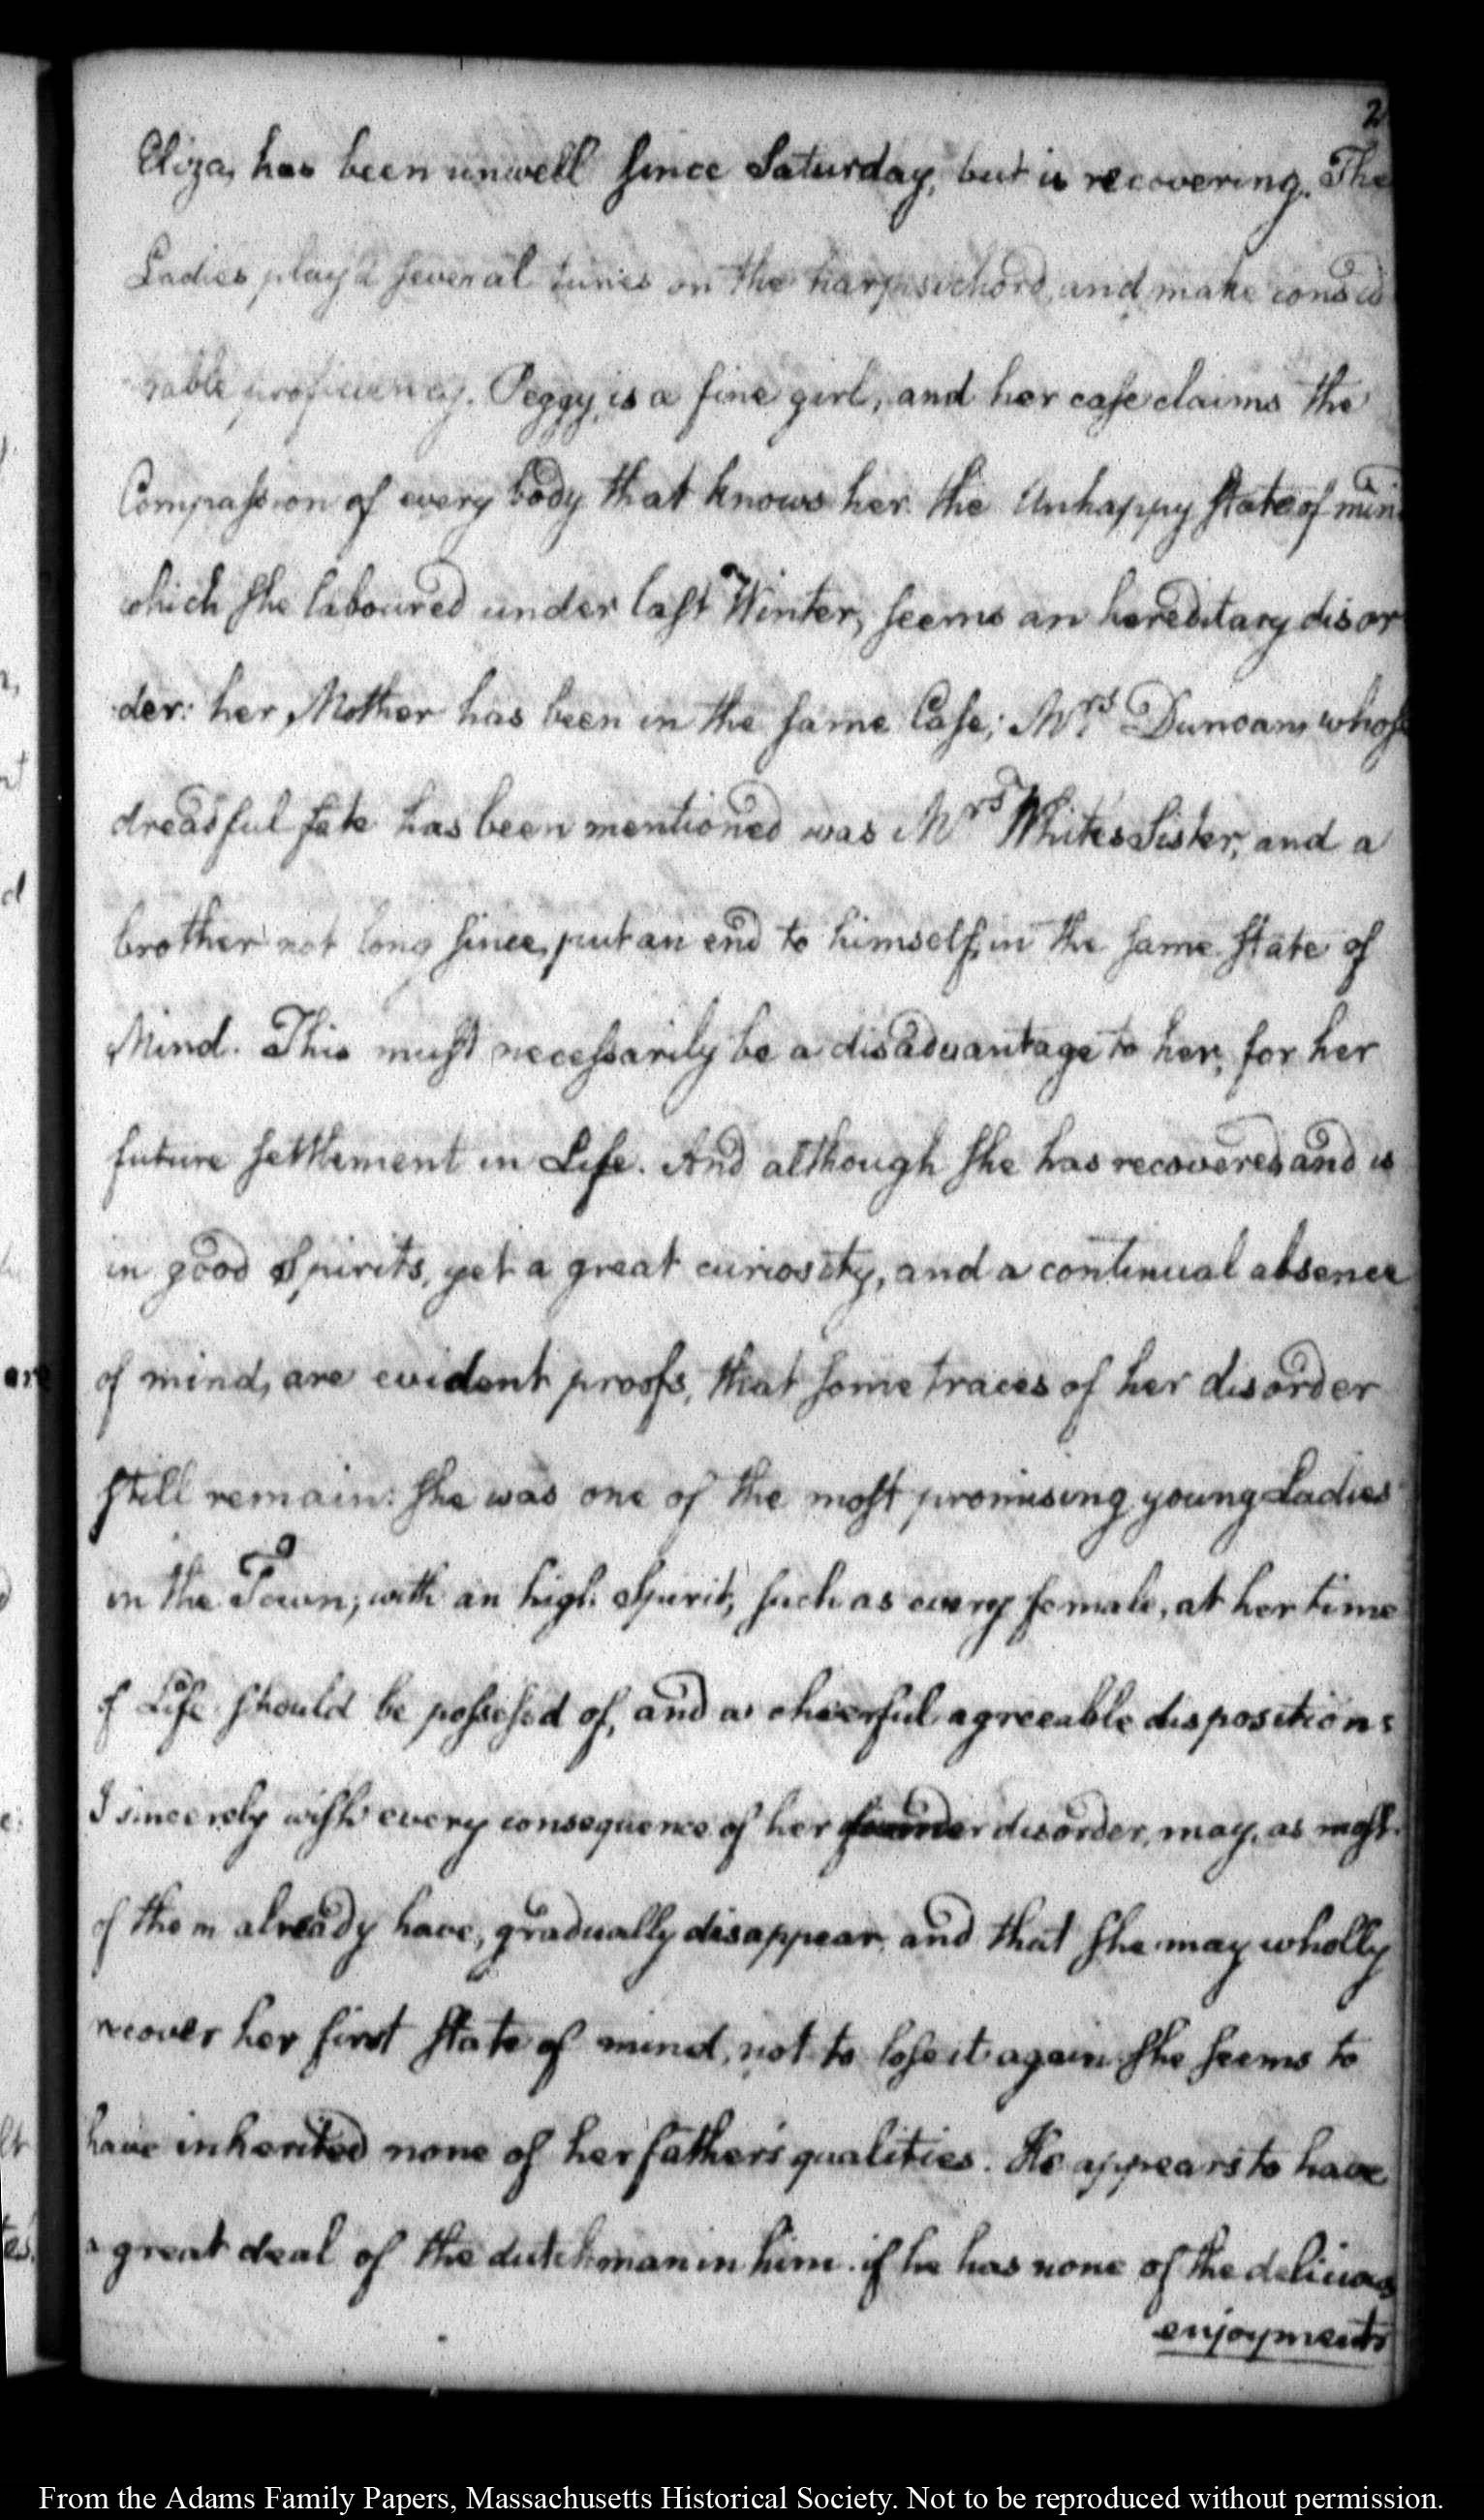 2
Eliza, has been unwell since Saturday, but is recovering. The
Ladies play'd several tunes on the harpsichord, and make consid
rable proficiency. Peggy, is a fine girl, and her case claims the
Compassion of every body that knows her. the Unhappy state of min
which she laboured under last Winter, seems an hereditary disor
der: her Mother has been in the same Case; Mrs Duncan, whose
dreadful fate has been mentioned was Mrs Whites Sister, and a
brother not long since, put an end to himself, in the same state of
Mind. This must necessarily be a disadvantage to her, for her
future settlement in Life. And although she has recovered and is
in good Spirits, yet a great curiosity, and a continual absence
of mind, are evident proofs, that some traces of her disorder
still remain: she was one of the most promising young Ladies
in the Town; with an high Spirit, such as every female, at her time
of Life should be possessed of, and a cheerful agreeable disposition:
I sincerely wish every consequence of her disorder, may, as most
of them already have, gradually disappear, and that she may wholly
recover her first state of mind, not to lose it again. She seems to
have inherited none of her father's qualities. He appears to have
a great deal of the dutchman in him. if he has none of the delicious
enjoyments
are
From the Adams Family Papers, Massachusetts Historical Society. Not to be reproduced without permission.